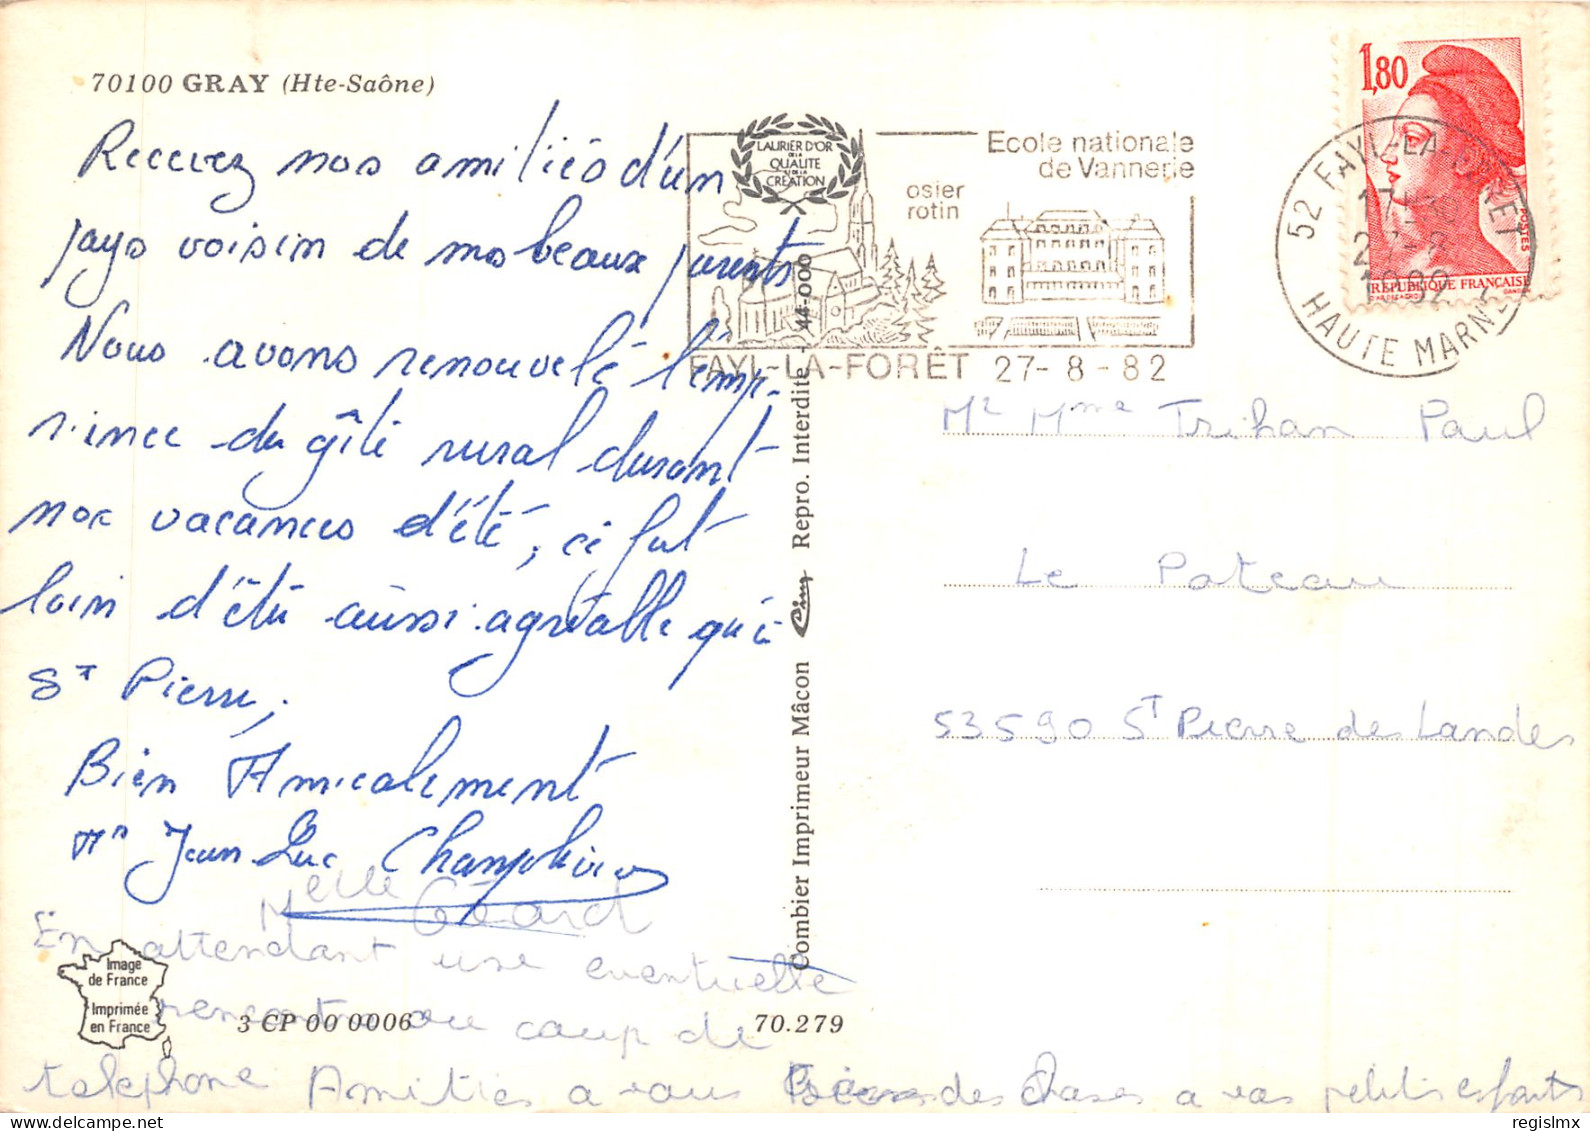 70100 GRAY (Hte-Saône)
Recevez nos amitiés d'un
pays voisin de mes beaux parents
Nous avons renouvelé l'exp-
rience du gîte rural durant
nos vacances d'été, ce fut
loin d'être aussi agréable qu'à
St Pierre,
Bien Amicalement
Mr Jean-Luc
Melle Géard
En attendant une eventuelle
rencontre ou coup de
telephone Amities a vous des choses a vos petits enfants
LAURIER D'OR
DE LA
QUALITE
& DE LA
CREATION
Ecole nationale
de Vannerie
osier
rotin
FAYL-LA-FORÊT 27-8-82
1,80
POSTES
REPUBLIQUE FRANÇAISE
52 FAYL-LA-FORET
17
HAUTE MARNE
Mr Mme Trihan Paul
Le Pateau
53590 St Pierre des Landes
Combier Imprimeur Mâcon Cim Repro. Interdite - 44-000
Image
de France
Imprimée
en France
3 CP 00 0006
70.279
regislmx